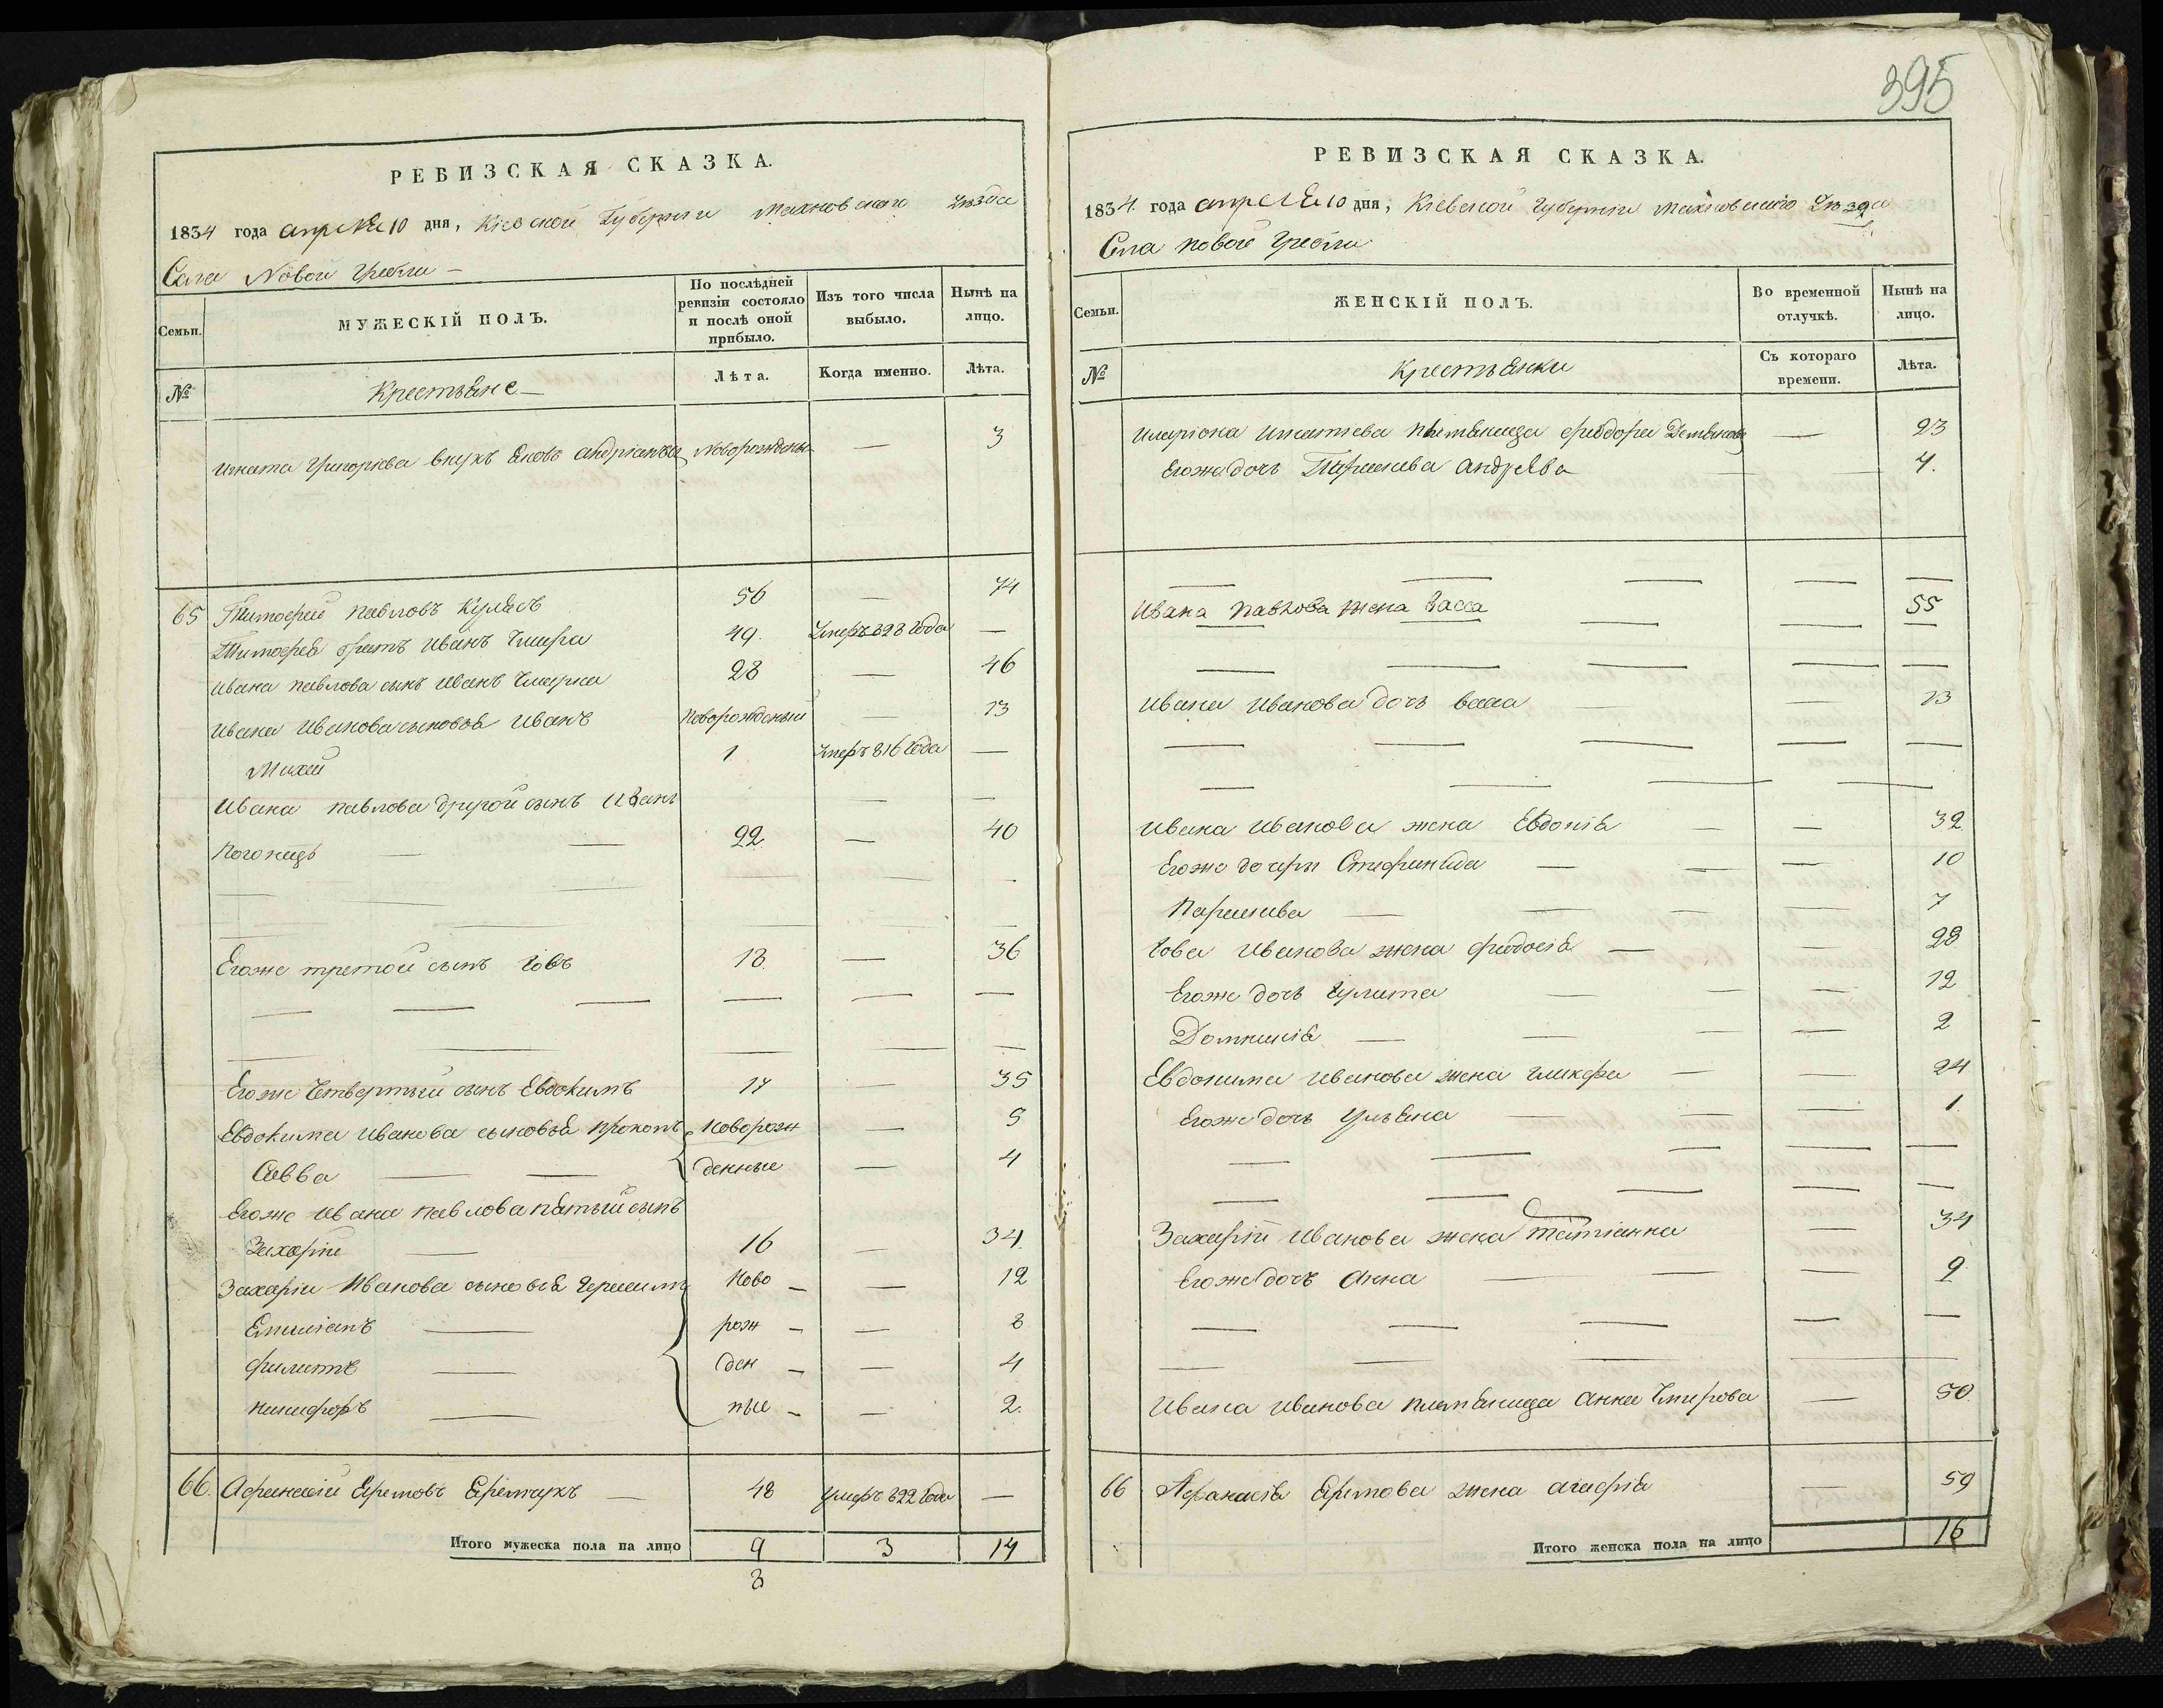 395
РЕВИЗСКАЯ СКАЗКА.
1834 года апреля 10 дня, Кіевской Губерніи Махновскаго Уѣзда
Села Новой Гребли
Семьи.
МУЖЕСКІЙ ПОЛЪ.
По послѣдней ревизіи состояло и послѣ оной прибыло.
Изъ того числа выбыло.
Нынѣ на лицо.
№
Крестьяне
Лѣта.
Когда именно.
Лѣта.
Игната Григорьева внукъ Яковъ Андріановъ новорожденый — 3
65 Тимофей Павловъ Кулясъ 56 — 74
Тимофея братъ Иванъ 49. Умеръ 828 года —
Ивана Павлова сынъ Иванъ 28 — 46
Ивана Иванова сыновья Иванъ новорожденый 13
Михей 1 Умеръ 816 года —
Ивана Павлова другой сынъ Иванъ — —
22 — 40
Егоже третой сынъ Іовъ 18. — 36
Егоже четвертый сынъ Евдокимъ 17 — 35
Евдокима Иванова сыновья Прокопъ новорож — 5
Савва — — денные — 4
Егоже Ивана Павлова пятый сынъ
Захарій — 16 — 34.
Захарія Иванова сыновья Герасимъ ново — — 12
Емиліанъ — рож — — 8
Филипъ — ден — — 4
Никифоръ — ные — — 2.
66. Афанасій Ефремовъ 48 умеръ 822 года —
Итого мужеска пола на лицо 9 3 14
8
РЕВИЗСКАЯ СКАЗКА.
1834. года апреля 10 дня, Кіевской Губерніи Махновскаго Уѣзда
Села Новой Гребли
Семьи.
ЖЕНСКІЙ ПОЛЪ.
Во временной отлучкѣ.
Нынѣ на лицо.
№
Крестьянки
Съ котораго времени.
Лѣта.
Иларіона Игнатіева племяница Феодора — 23
Егоже дочь Параскева Андреева — 4.
Ивана Павлова жена Васса 55
Ивана Иванова дочь Васса — — 13
Ивана Иванова жена Евдокія — — 32
Егоже дочери Стефанида — — — 10
Параскева — — — — 7
Іова Иванова жена Феодосія — — 28
Егоже дочь Іулита — — — 12
Домникія — — — — 2
Евдокима Иванова жена Гликера — — 24
Егоже дочь Ульяна — — — 1.
Захарій Иванова жена Татіанна — 34
Егоже дочь Анна — — — 9
Ивана Иванова племяница Анна — 50.
66 Афанасія Ефремова жена Агафія — 59
Итого женска пола на лицо 16